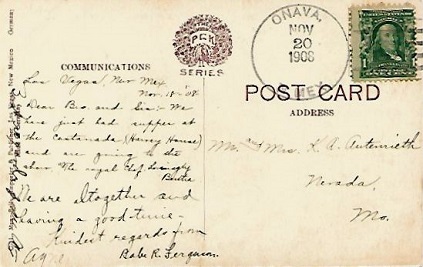 COMMUNICATIONS
PECK
SERIES
ONAVA,
NOV
20
1908
N. MEX.
POST CARD
ADDRESS
Las Vegas, New Mex
Nov. 19 - '08.
Dear Bro. and Sis:- We
have just had supper at
the Castanada (Harvey House)
and are going to the
show. The royal chef
Bertie
We are altogether and
having a good time -
Kindest regards from
Babe R. Ferguson.
Mr. & Mrs. K. A. Autenrieth
Nevada,
Mo.
Las Vegas, New Mexico Germany